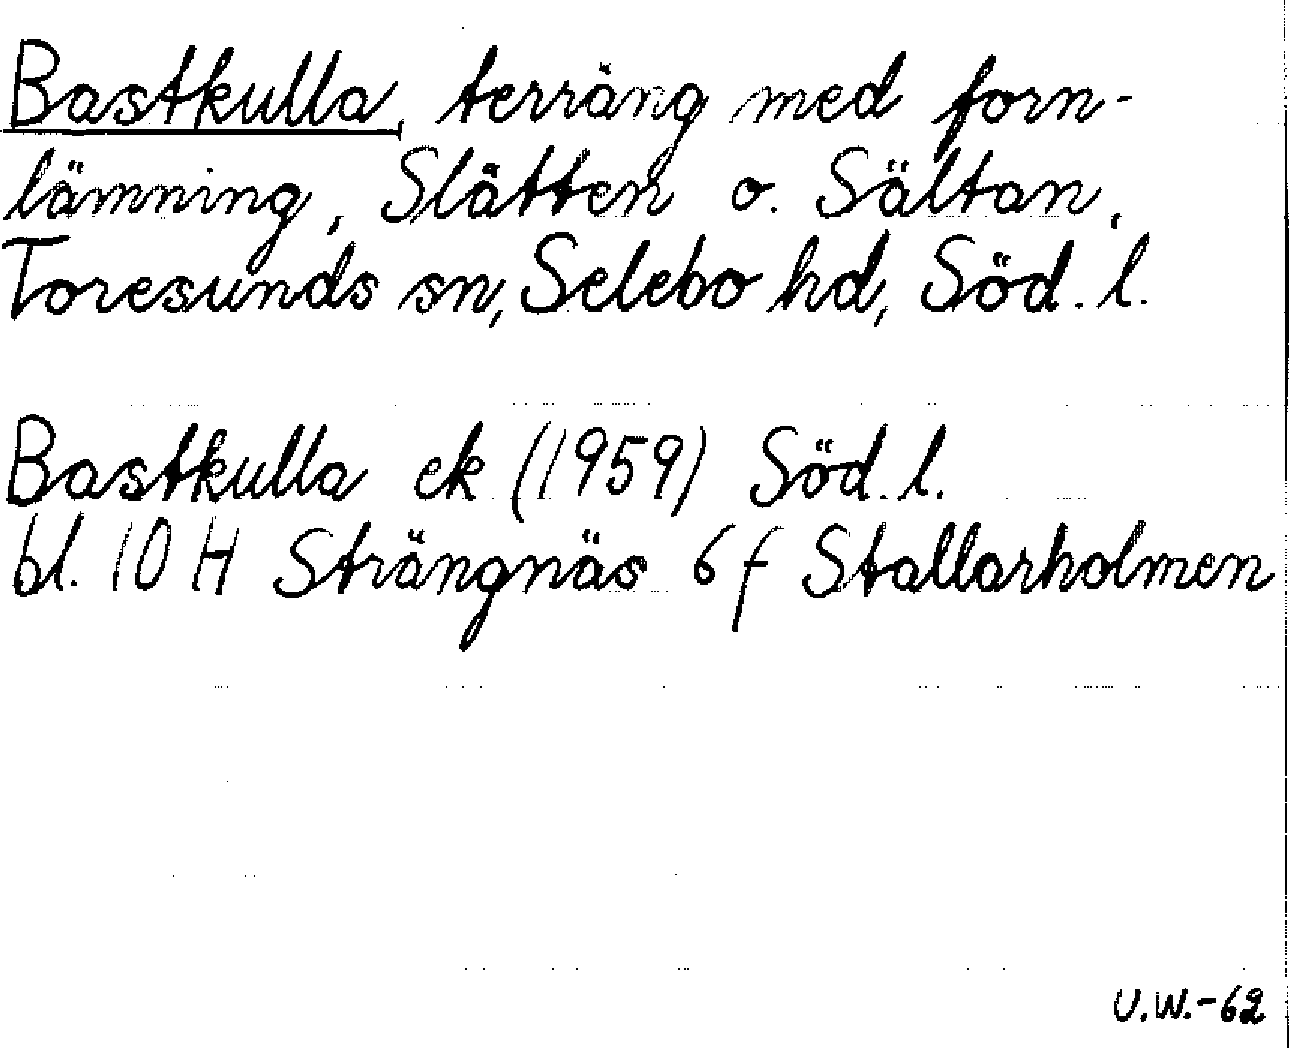 Bastkulla, terräng med forn-
lämning, Slätten o. Sältan,
Toresunds sn, Selebo hd, Söd. l.
Bastkulla ek (1959) Söd. l.
bl. 10 H Strängnäs 6 f Stallarholmen
U.W.-62